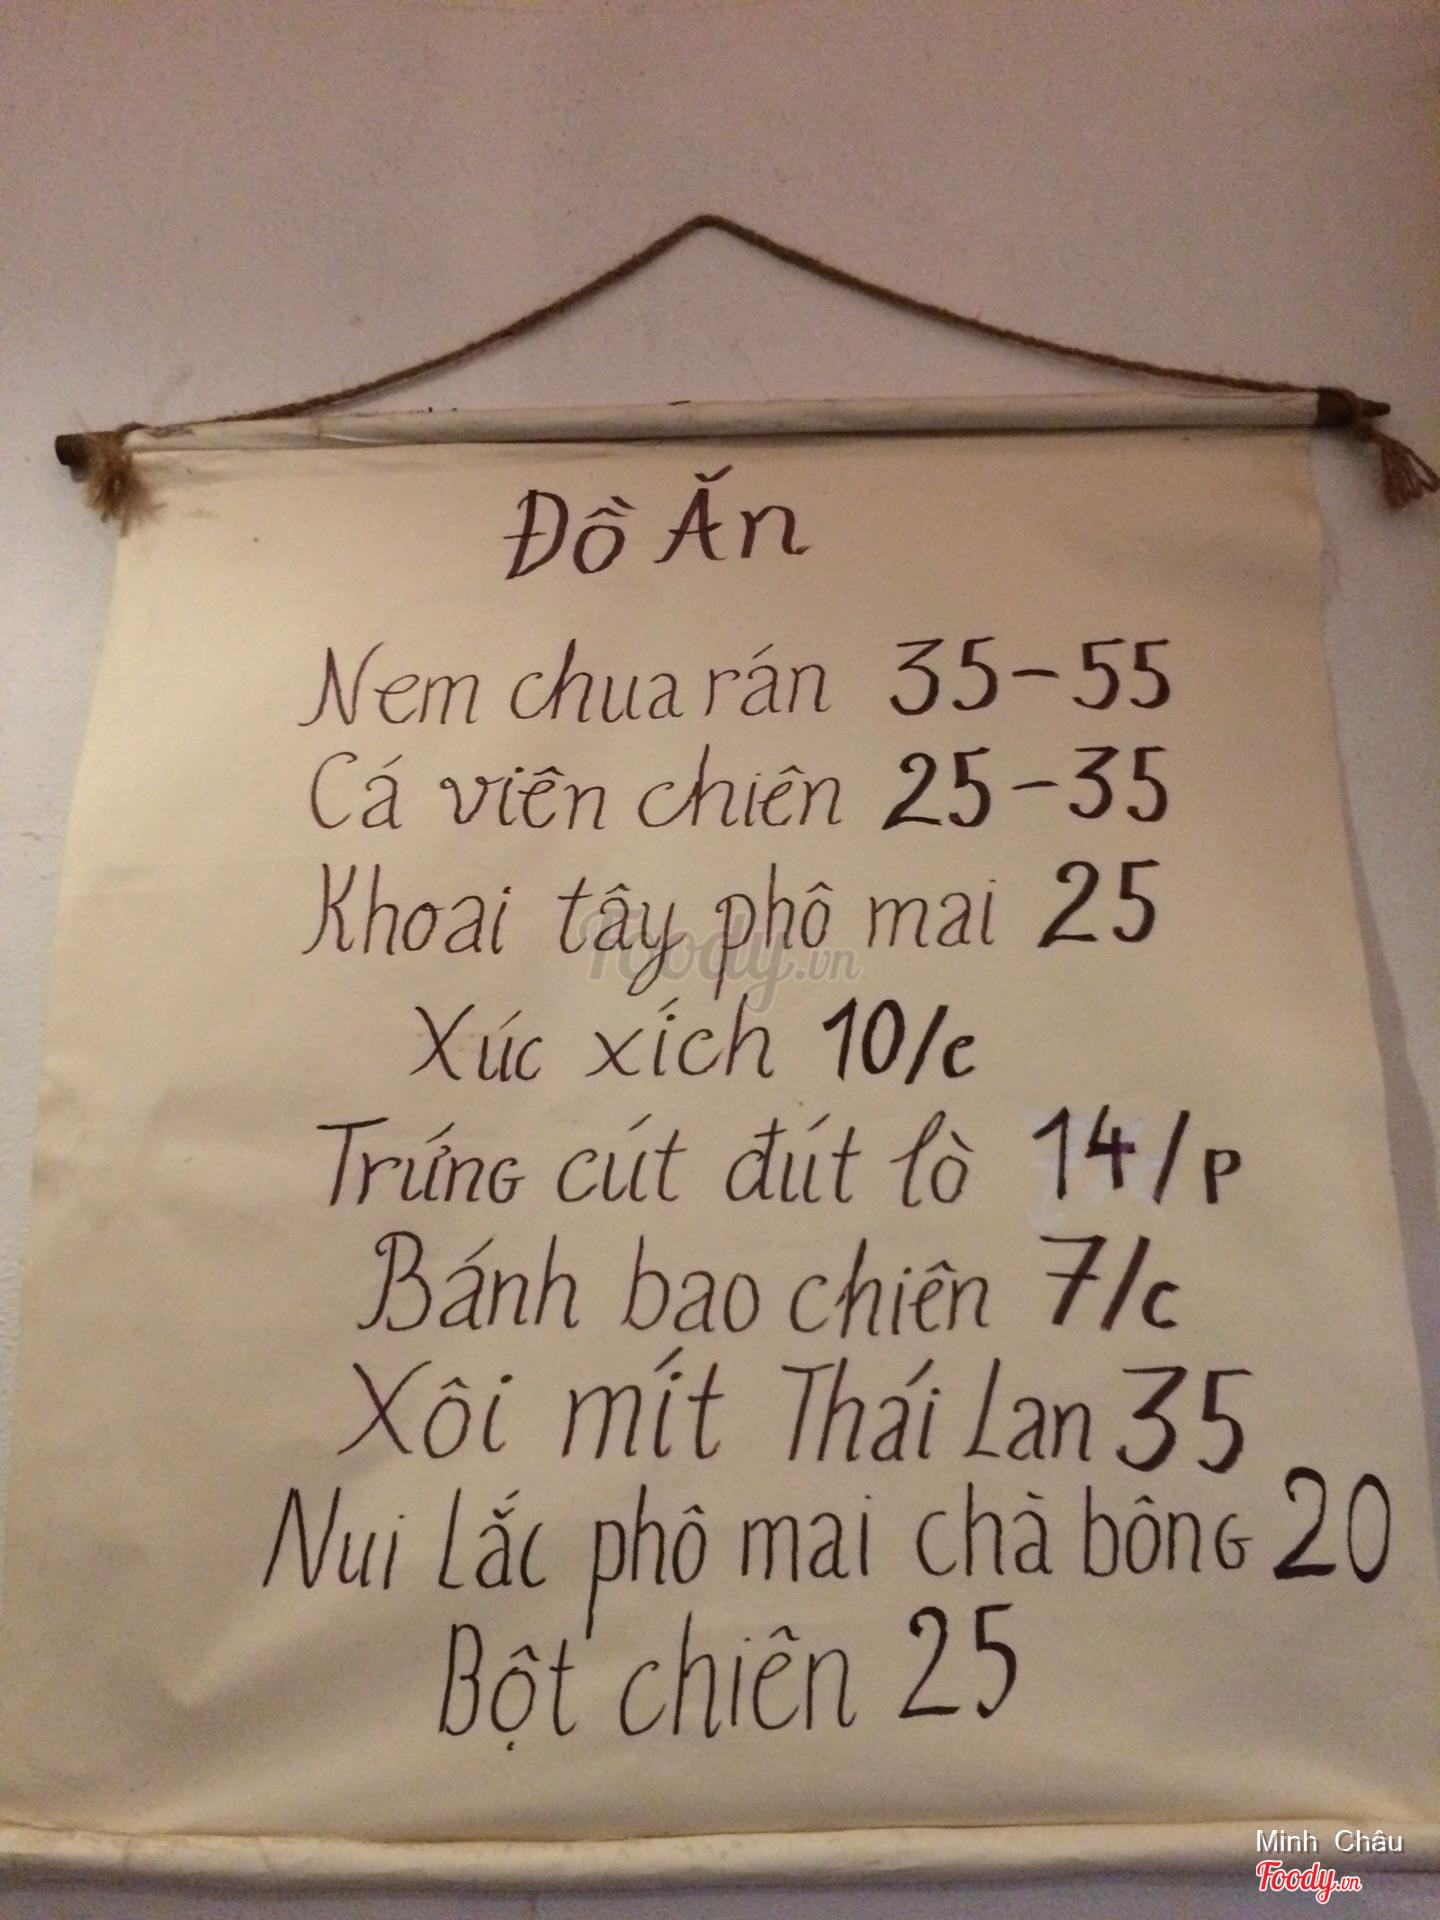 Đồ Ăn
Nem chua rán 35-55
Cá viên chiên 25-35
Khoai tây phô mai 25
Foody.vn
Xúc xích 10/c
Trứng cút đút lò 14/p
Bánh bao chiên 7/c
Xôi mít Thái Lan 35
Nui lắc phô mai chà bông 20
Bột chiên 25
Minh Châu
Foody.vn